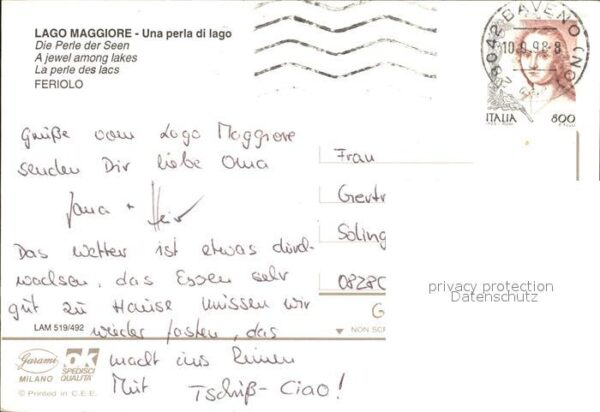 LAGO MAGGIORE - Una perla di lago
Die Perle der Seen
A jewel among lakes
La perle des lacs
FERIOLO
28042 BAVENO (NO)
10.9.98-8
ITALIA 800
Grüße vom Lago Maggiore
senden Dir liebe Oma
Jana +
Das Wetter ist etwas durch-
wachsen, das Essen sehr
gut zu Hause müssen wir
wieder fasten, das
macht ins
Mit Tschüß - Ciao!
Frau
Gertr
Soling
0828
privacy protection
Datenschutz
LAM 519/492
NON SCR
Garami
MILANO
OK
SPEDISCI
QUALITA'
© Printed in C.E.E.